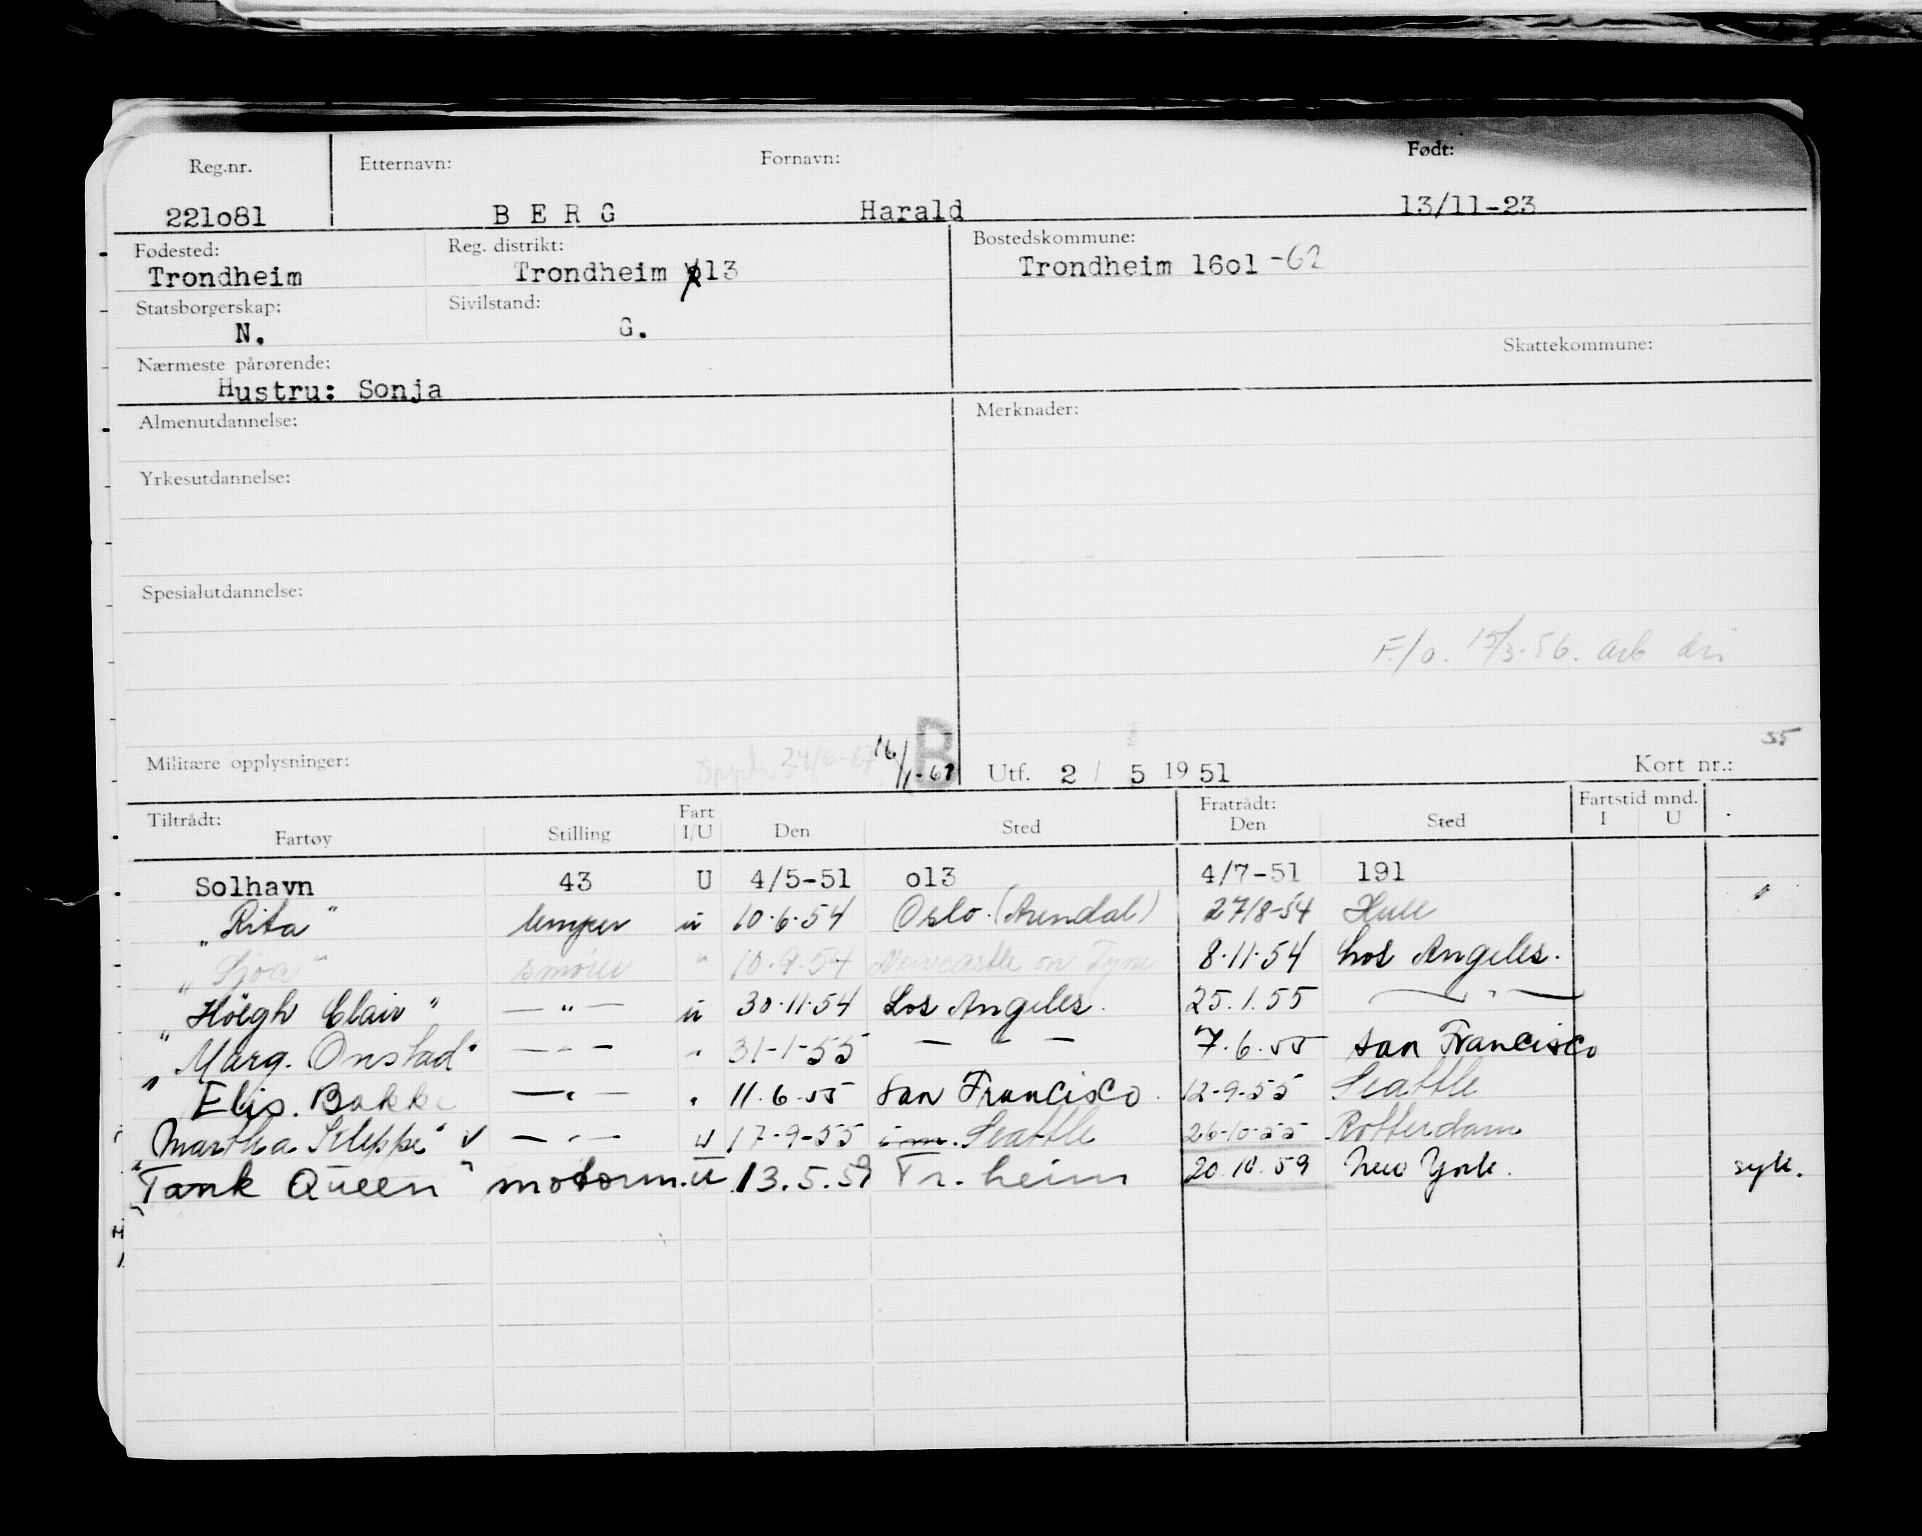 Reg.nr. Etternavn: Fornavn: Født:
221o81 B E R G Harald 13/11-23
Fødested: Reg. distrikt: Bostedskommune:
Trondheim Trondheim 13 Trondheim 16o1 -62
Statsborgerskap: Sivilstand:
N. G.
Skattekommune:
Nærmeste pårørende:
Hustru: Sonja
Almenutdannelse: Merknader:
Yrkesutdannelse:
Spesialutdannelse:
F/o. 15/3.56. arb
55
Militære opplysninger: 24/6-67 16/1-67 B Utf. 2 / 5 19 51 Kort nr.:
Tiltrådt: Fart Fratrådt: Fartstid mnd.
Fartøy Stilling I/U Den Sted Den Sted I U
Solhavn 43 U 4/5-51 o13 4/7-51 191
"Rita" lemper u 10.6.54 Oslo. (Arendal) 27/8-54 Hull
"Sjoa" smører " 10.9.54 Newcastle on Tyne 8.11.54 Los Angeles.
"Höegh Clair" — " — u 30.11.54 Los Angeles. 25.1.55 — " —
"Marg. Onstad" — " — " 31-1-55 — — — 7.6.55 San Francisco
" Elis. Bakke — " — " 11.6.55 San Francisco. 12-9-55 Seattle
"Martha Kleppe" v — " — u 17-9-55 Seattle 26-10-55 Rotterdam
"Tank Queen" motorm. u 13.5.59 Tr. heim 20.10.59 New York. syk.